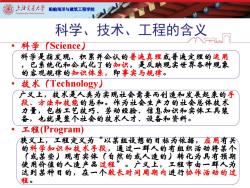 上海交通大学 船舶海洋与建筑工程学院
科学、技术、工程的含义
• 科学(Science)
科学是指发现、积累并公认的普遍真理或普遍定理的运用，已系统化和公式化了的知识，是反映现实世界各种现象的客观规律的知识体系，即事实与规律。
• 技术(Technology)
广义上，技术是人类为实现社会需要而创造和发展起来的手段、方法和技能的总和。作为社会生产力的社会总体技术力量，包括工艺技巧、劳动经验、信息知识和实体工具装备，也就是整个社会的技术人才、设备和资料。
• 工程(Program)
狭义上，工程定义为"以某组设想的目标为依据，应用有关的科学知识和技术手段，通过一群人的有组织活动将某个（或某些）现有实体（自然的或人造的）转化为具有预期使用价值的人造产品过程"。广义上，工程就是由一群人为达到某种目的，在一个较长时间周期内进行协作活动的过程。